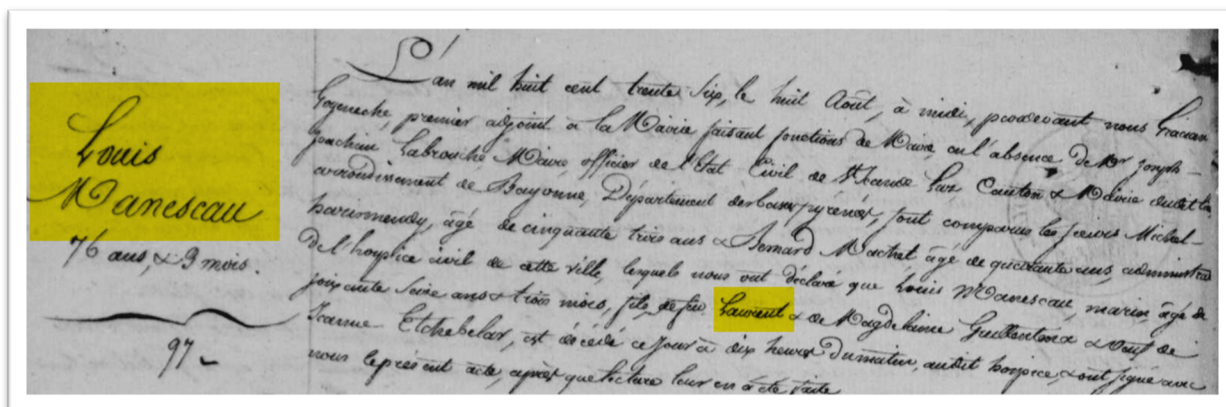 Louis
Manescau
76 ans, & 3 mois.
97
L'an mil huit cent trente six, le huit Août, à midi, pardevant nous Gracian
Goyeneche, premier adjoint à la Mairie faisant fonctions de Maire, en l'absence de Mr Joseph
Joachim Labrouche Maire, officier de l'Etat Civil de St Jean de Luz Canton & Mairie dudit lieu
arrondissement de Bayonne, Département des basses pyrénées, sont comparus les sieurs Michel
harismendy, âgé de cinquante trois ans & Bernard Machet âgé de quarante ans, administrés
de l'hospice civil de cette ville, lesquels nous ont déclaré que Louis Manescau, marin, âgé de
soixante Seize ans & trois mois, fils de feu Laurent & de Magdelaine & veuf de
Jeanne Etchebelar, est décédé ce jour à dix heures du matin, audit hospice, & ont signé avec
nous le présent acte, après que lecture leur en a été faite